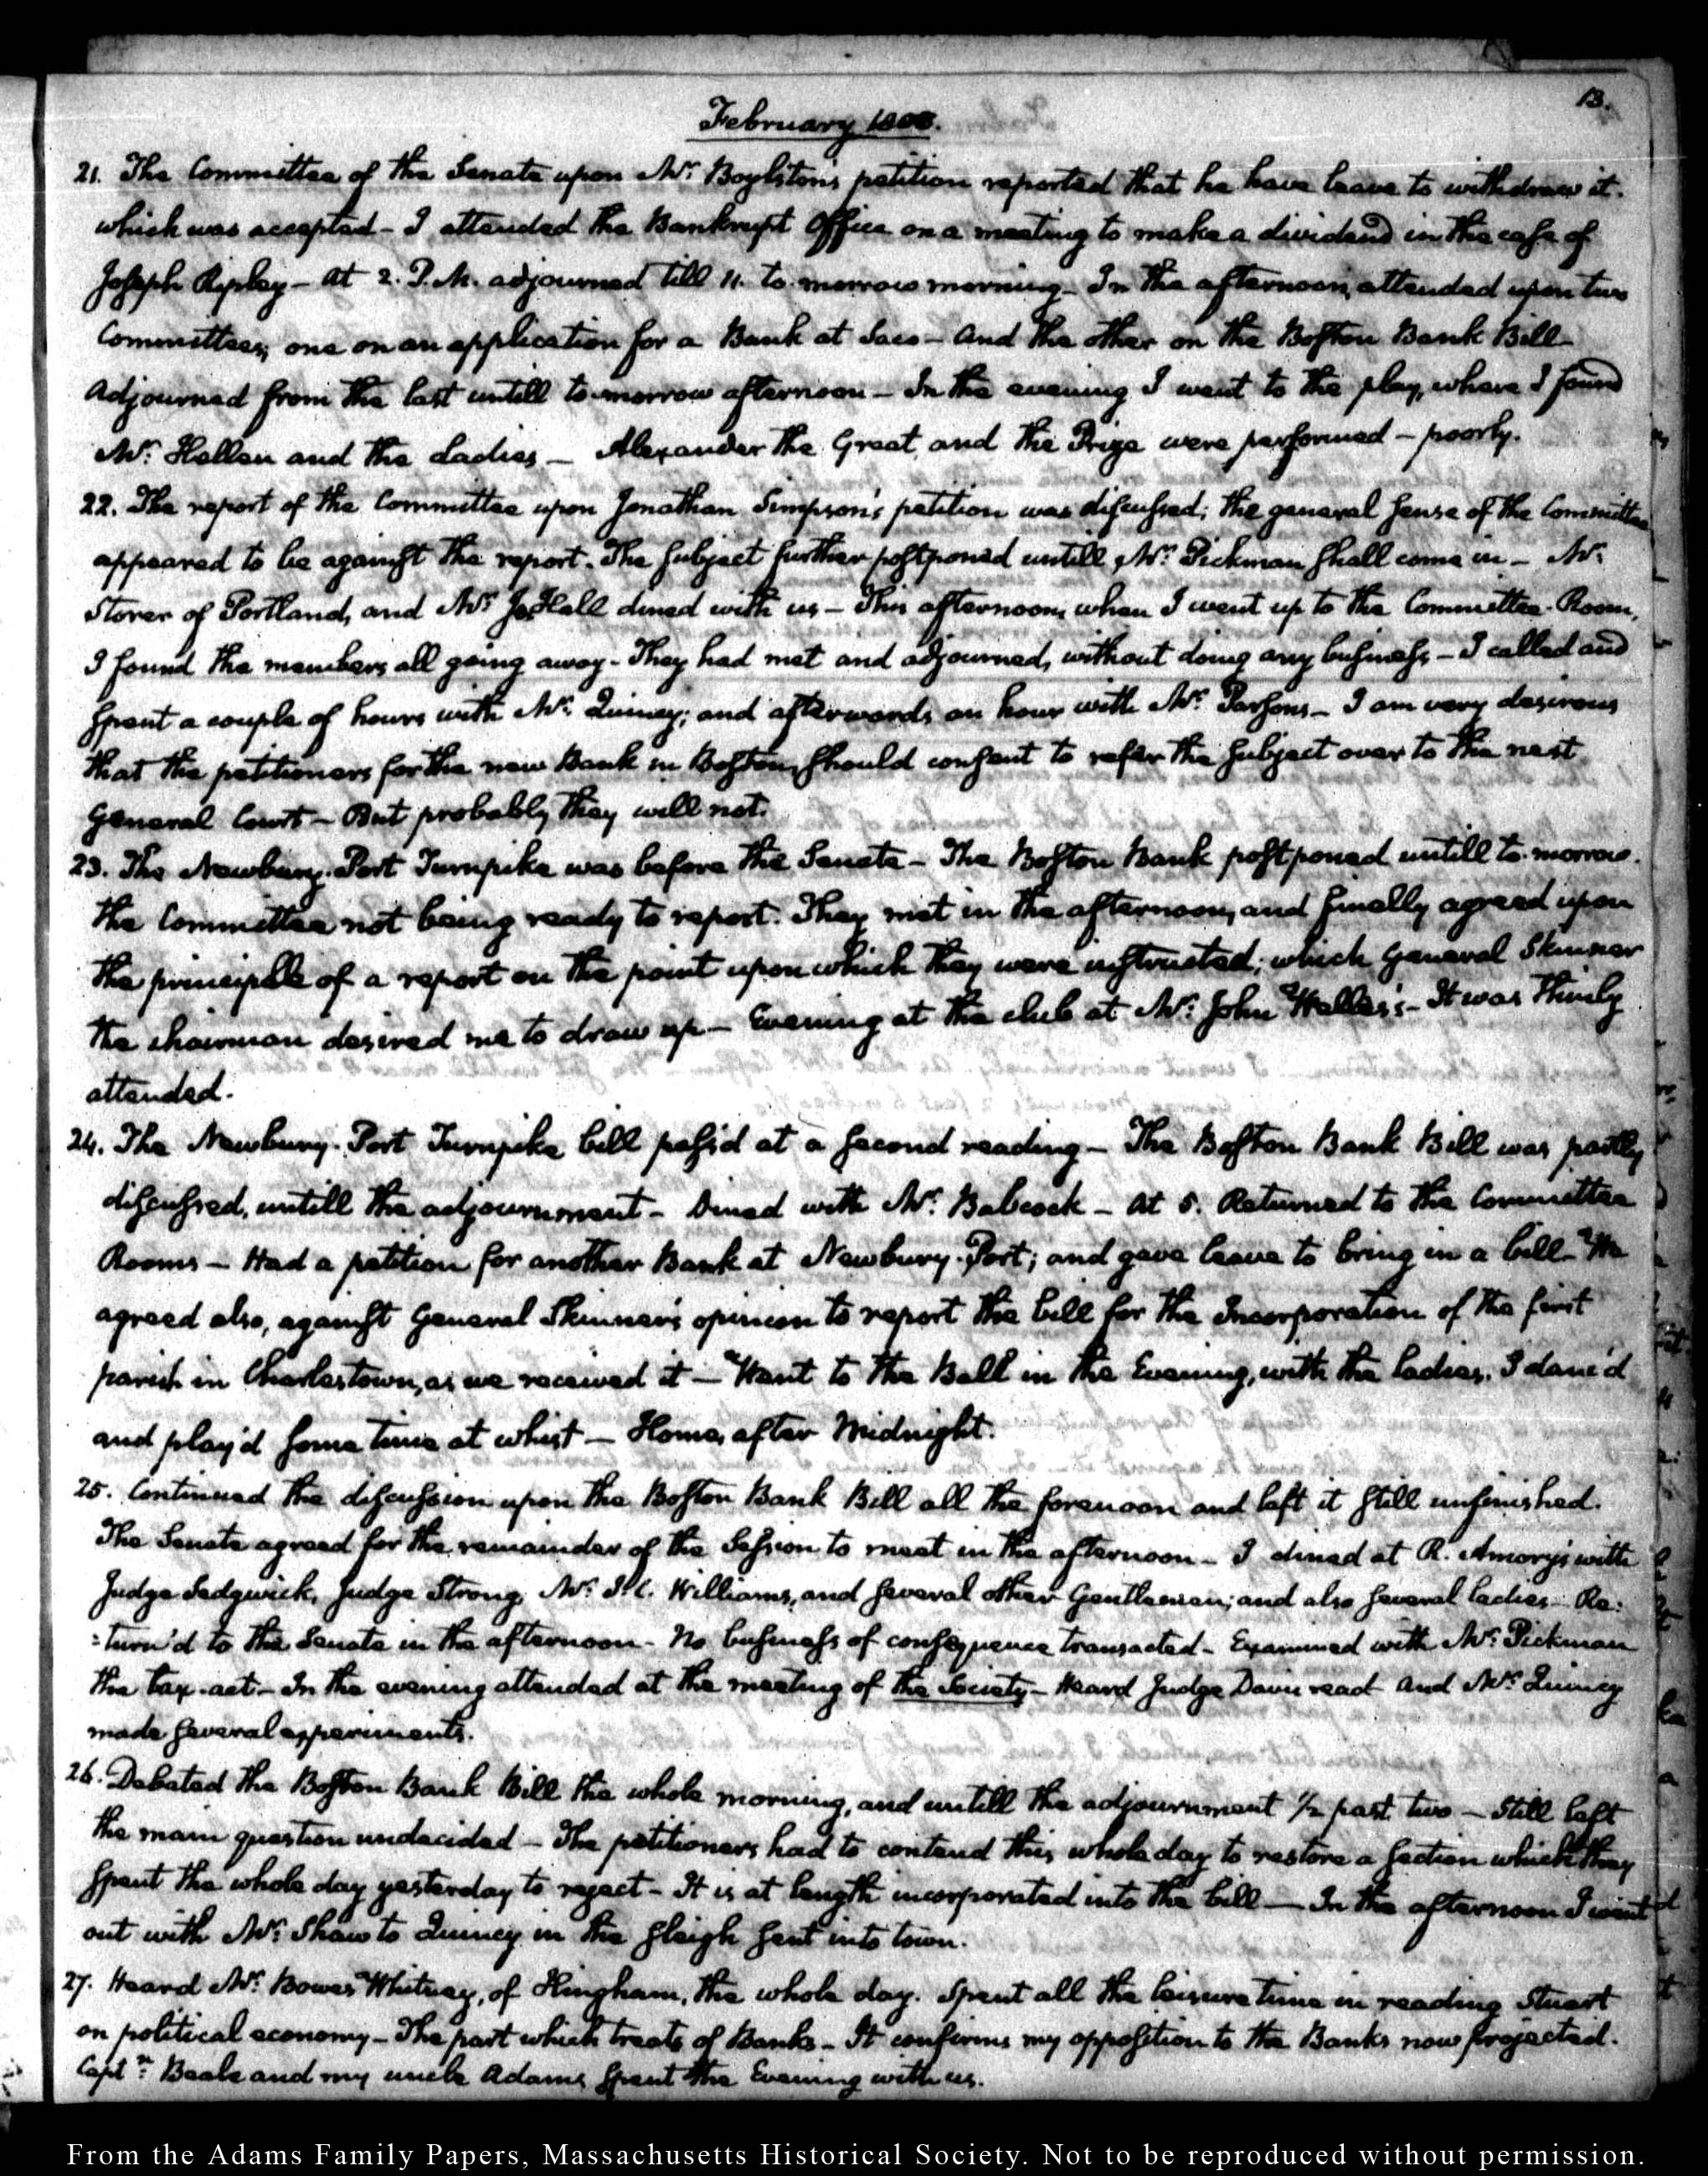 13.
February 1803.
21. The Committee of the Senate upon Mr: Boylston's petition reported that he have leave to withdraw it.
which was accepted - I attended the Bankrupt Office on a meeting to make a dividend in the case of
Joseph Ripley - At 2. P.M. adjourned till 11. to-morrow morning - In the afternoon, attended upon two
Committees; one on an application for a Bank at Saco - And the other on the Boston Bank Bill -
Adjourned from the last untill to-morrow afternoon - In the evening I went to the play, where I found
Mr: Hellen and the Ladies - Alexander the Great, and the Prize were performed - poorly.
22. The report of the Committee upon Jonathan Simpson's petition was discussed; the general sense of the Committee
appeared to be against the report. The subject further postponed untill Mr: Pickman shall come in - Mr:
Storer of Portland, and Mr: J. Hall dined with us - This afternoon, when I went up to the Committee-Room,
I found the members all going away - They had met and adjourned, without doing any business - I called and
spent a couple of hours with Mr: Quincy; and afterwards an hour with Mr: Parsons - I am very desirous
that the petitioners for the new Bank in Boston, should consent to refer the subject over to the next
General Court - But probably they will not.
23. The Newbury-Port Turnpike was before the Senate - The Boston Bank postponed untill to-morrow.
the Committee not being ready to report. They met in the afternoon, and finally agreed upon
the principle of a report on the point upon which they were instructed; which General Skinner
the chairman desired me to draw up - Evening at the club at Mr: John Welles's - It was thinly
attended.
24. The Newbury-Port Turnpike bill pass'd at a second reading - The Boston Bank Bill was partly
discussed, untill the adjournment - Dined with Mr: Babcock - At 5. Returned to the Committee
Rooms - Had a petition for another Bank at Newbury-Port; and gave leave to bring in a bill - We
agreed also, against General Skinner's opinion to report the bill for the Incorporation of the first
parish in Charlestown, as we received it - Went to the Ball in the Evening, with the ladies. I danc'd
and play'd some time at whist - Home, after Midnight.
25. Continued the discussion upon the Boston Bank Bill all the forenoon and left it still unfinished.
The Senate agreed for the remainder of the Session to meet in the afternoon - I dined at R. Amory's with
Judge Sedgwick, Judge Strong, Mr: S. C. Williams, and several other Gentlemen; and also several ladies. Re:
:turn'd to the Senate in the afternoon - No business of consequence transacted - Examined with Mr: Pickman
the tax-act - In the evening attended at the meeting of the Society - Heard Judge Davis read and Mr: Quincy
made several experiments.
26. Debated the Boston Bank Bill the whole morning, and untill the adjournment 1/2 past two - Still left
the main question undecided - The petitioners had to contend this whole day to restore a section which they
spent the whole day yesterday to reject - It is at length incorporated into the bill - In the afternoon I went
out with Mr: Shaw to Quincy in the sleigh sent into town.
27. Heard Mr: Bowes Whitney, of Hingham, the whole day. Spent all the leisure time in reading Stuart
on political economy - The part which treats of Banks - It confirms my opposition to the Banks now projected.
Captn: Beale and my uncle Adams spent the Evening with us.
From the Adams Family Papers, Massachusetts Historical Society. Not to be reproduced without permission.